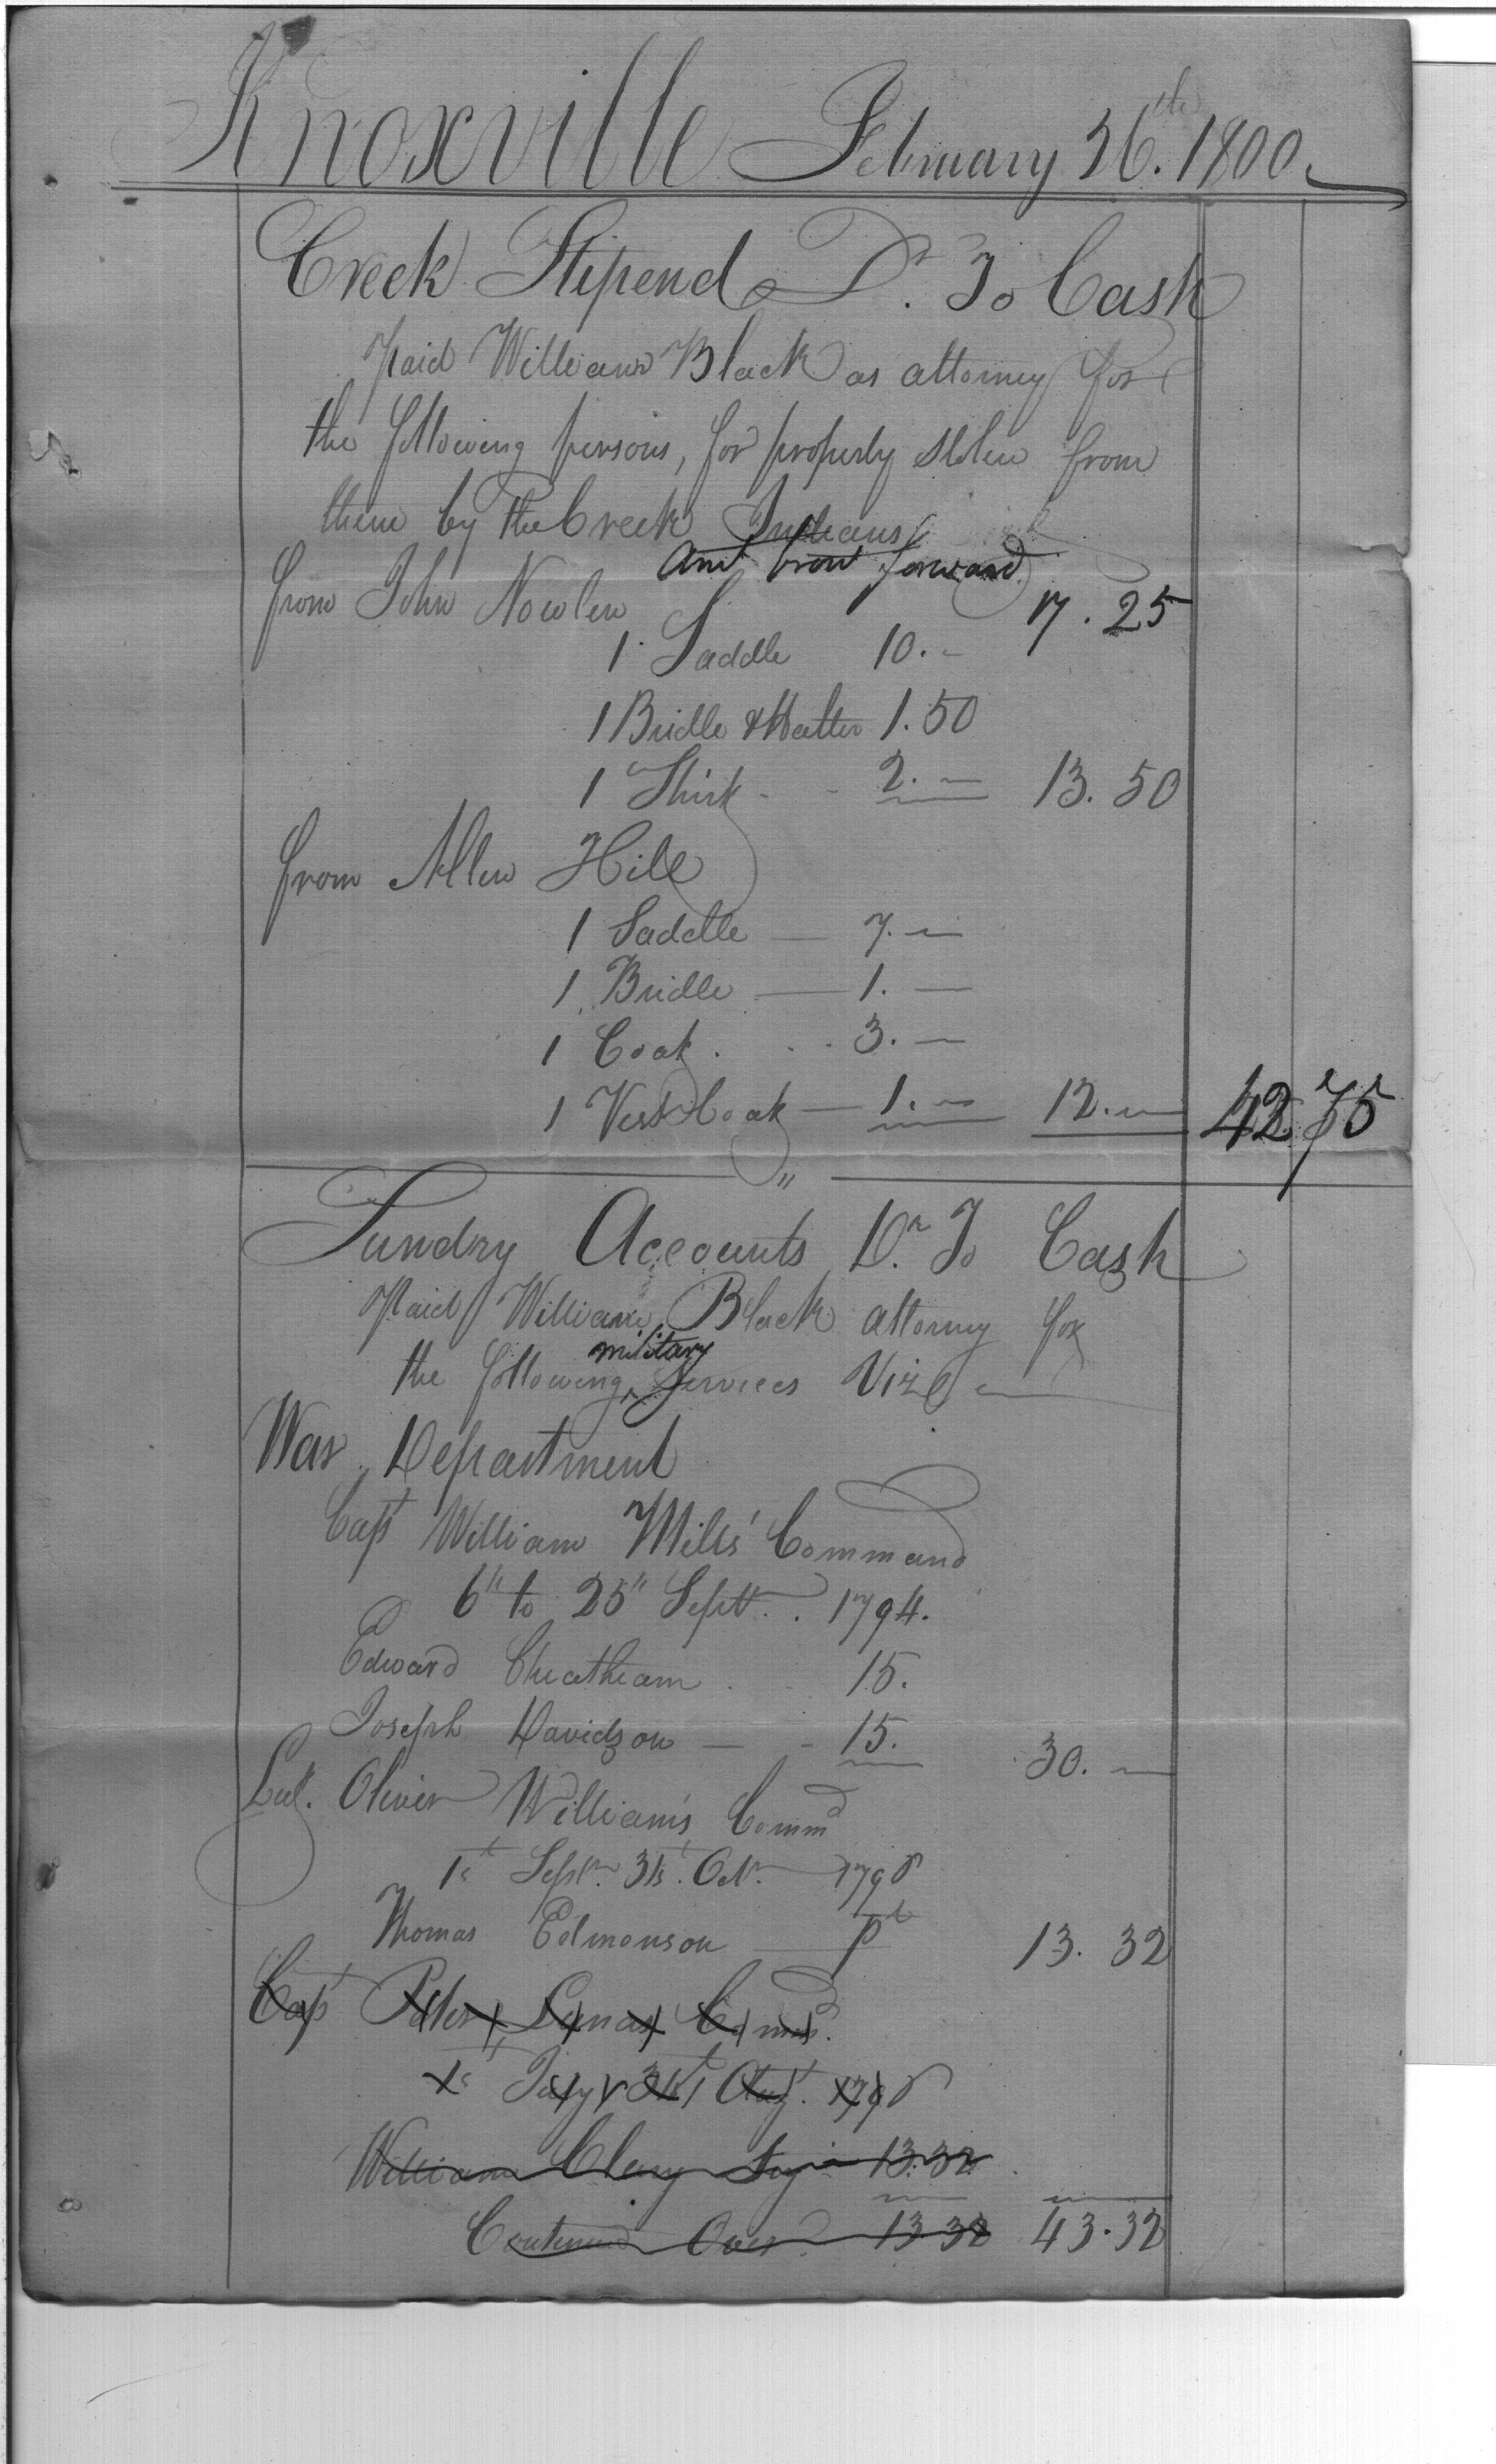 Knoxville February 26th. 1800.
Creek Stipend Dr. To Cash
Paid William Black as attorney for
the following persons, for property stolen from
them by the Creek Indians
Amt brot forward 17.25
from John Nowlen
1 Saddle 10.-
1 Bridle & Halter 1.50
1 Shirt - - 2.— 13.50
from Allen Hill
1 Saddle — 7.—
1 Bridle — 1.—
1 Coat . . . 3.—
1 Vest Coat — 1.— 12.— 42.75
"
Sundry Accounts Dr. To Cash
Paid William Black attorney for
the following ^military Services Viz
War Department
Capt William Mills' Command
6" to 25" Sept. . 1794.
Edward Cheatham . . 15.
Joseph Davidson — - 15. 30.—
Lut. Oliver William's Commd
1st Septr. 31st. Octr. 1798
Thomas Edmonson — pt 13.32
Capt Peter Commd.
1st July 31st Augt. 1798
William Clary 13.32
Continued Over 13.32 43.32